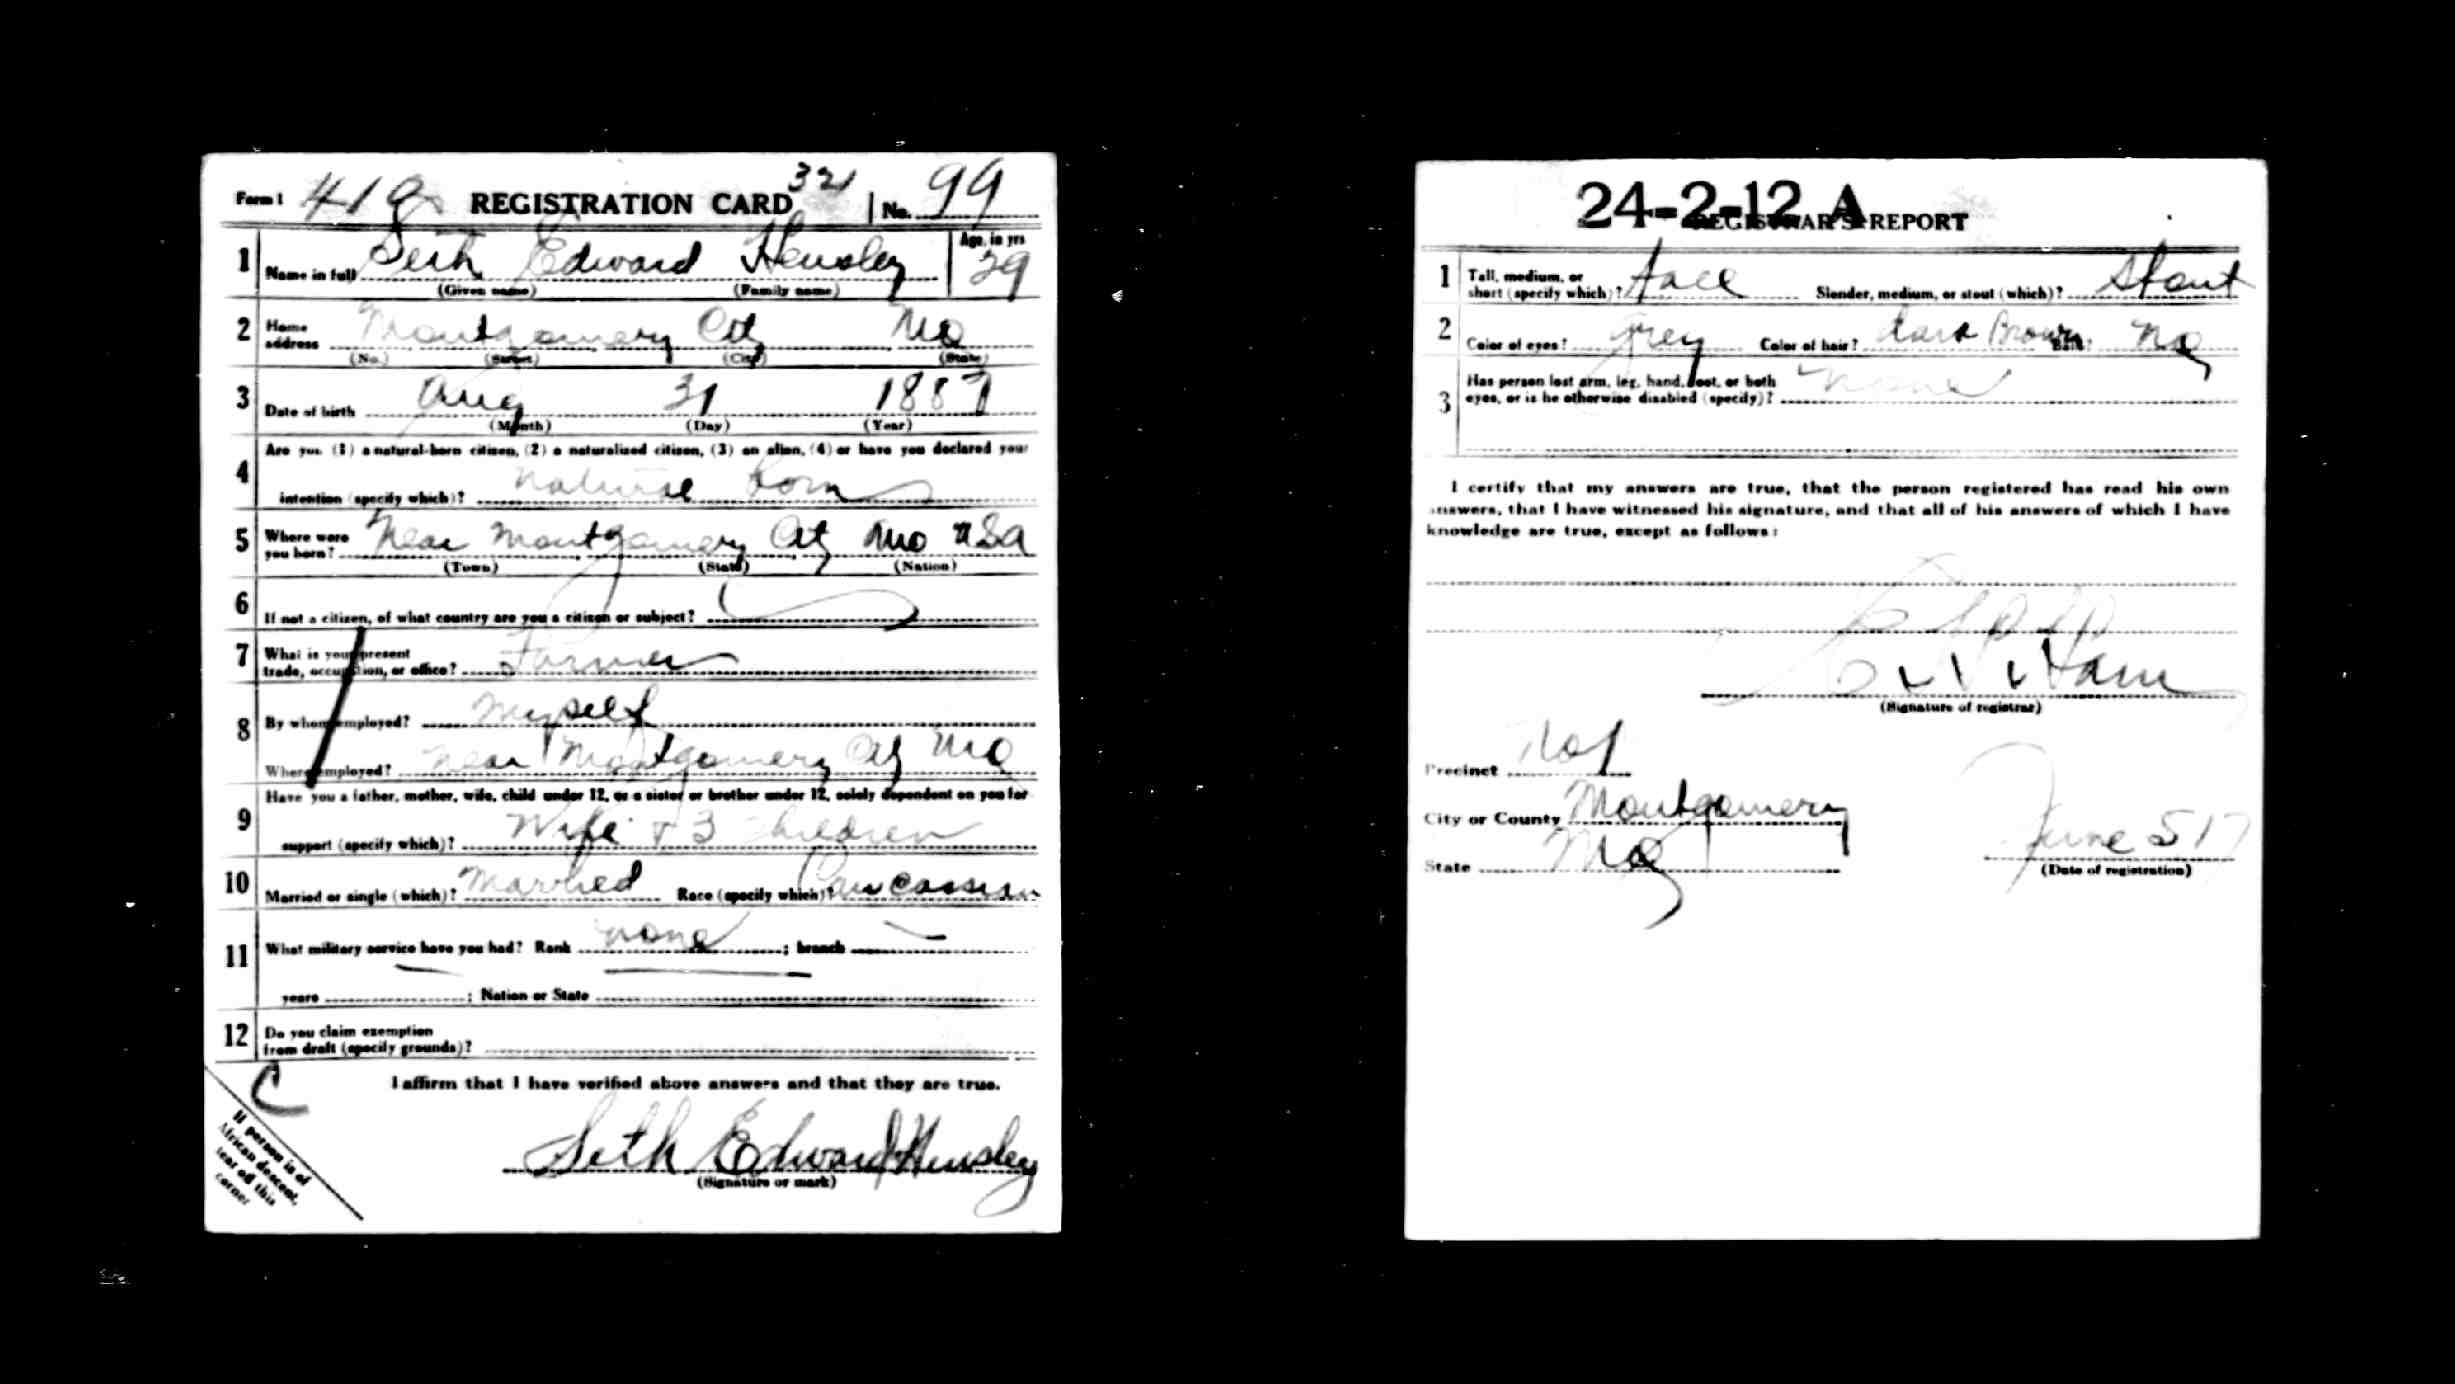 Form 1 419 REGISTRATION CARD 321 No. 99
1 Name in full Seth Edward Hensley Age, in yrs 29
(Given name) (Family name)
2 Home address Montgomery City Mo
(No.) (Street) (City) (State)
3 Date of birth Aug 31 1887
(Month) (Day) (Year)
4 Are you (1) a natural-born citizen, (2) a naturalized citizen, (3) an alien, (4) or have you declared your
intention (specify which)? natural born
5 Where were you born? Near Montgomery City Mo USA
(Town) (State) (Nation)
6 If not a citizen, of what country are you a citizen or subject?
7 What is your present trade, occupation, or office? Farmer
8 By whom employed? Myself
Where employed? near Montgomery City Mo
9 Have you a father, mother, wife, child under 12, or a sister or brother under 12, solely dependent on you for
support (specify which)? Wife + 3 Children
10 Married or single (which)? Married Race (specify which)? Caucassian
11 What military service have you had? Rank none ; branch
years ; Nation or State
12 Do you claim exemption from draft (specify grounds)?
I affirm that I have verified above answers and that they are true.
C
If person is of
African descent,
tear off this
corner
Seth Edward Hensley
(Signature or mark)
24-2-12 A
REGISTRAR'S REPORT
1 Tall, medium, or short (specify which)? tall Slender, medium, or stout (which)? Stout
2 Color of eyes? Grey Color of hair? dark Brown Bald? No
3 Has person lost arm, leg, hand, foot, or both
eyes, or is he otherwise disabled (specify)? None
I certify that my answers are true, that the person registered has read his own
answers, that I have witnessed his signature, and that all of his answers of which I have
knowledge are true, except as follows:
Ham
(Signature of registrar)
Precinct No 1
City or County Montgomery
State Mo June 5 17
(Date of registration)